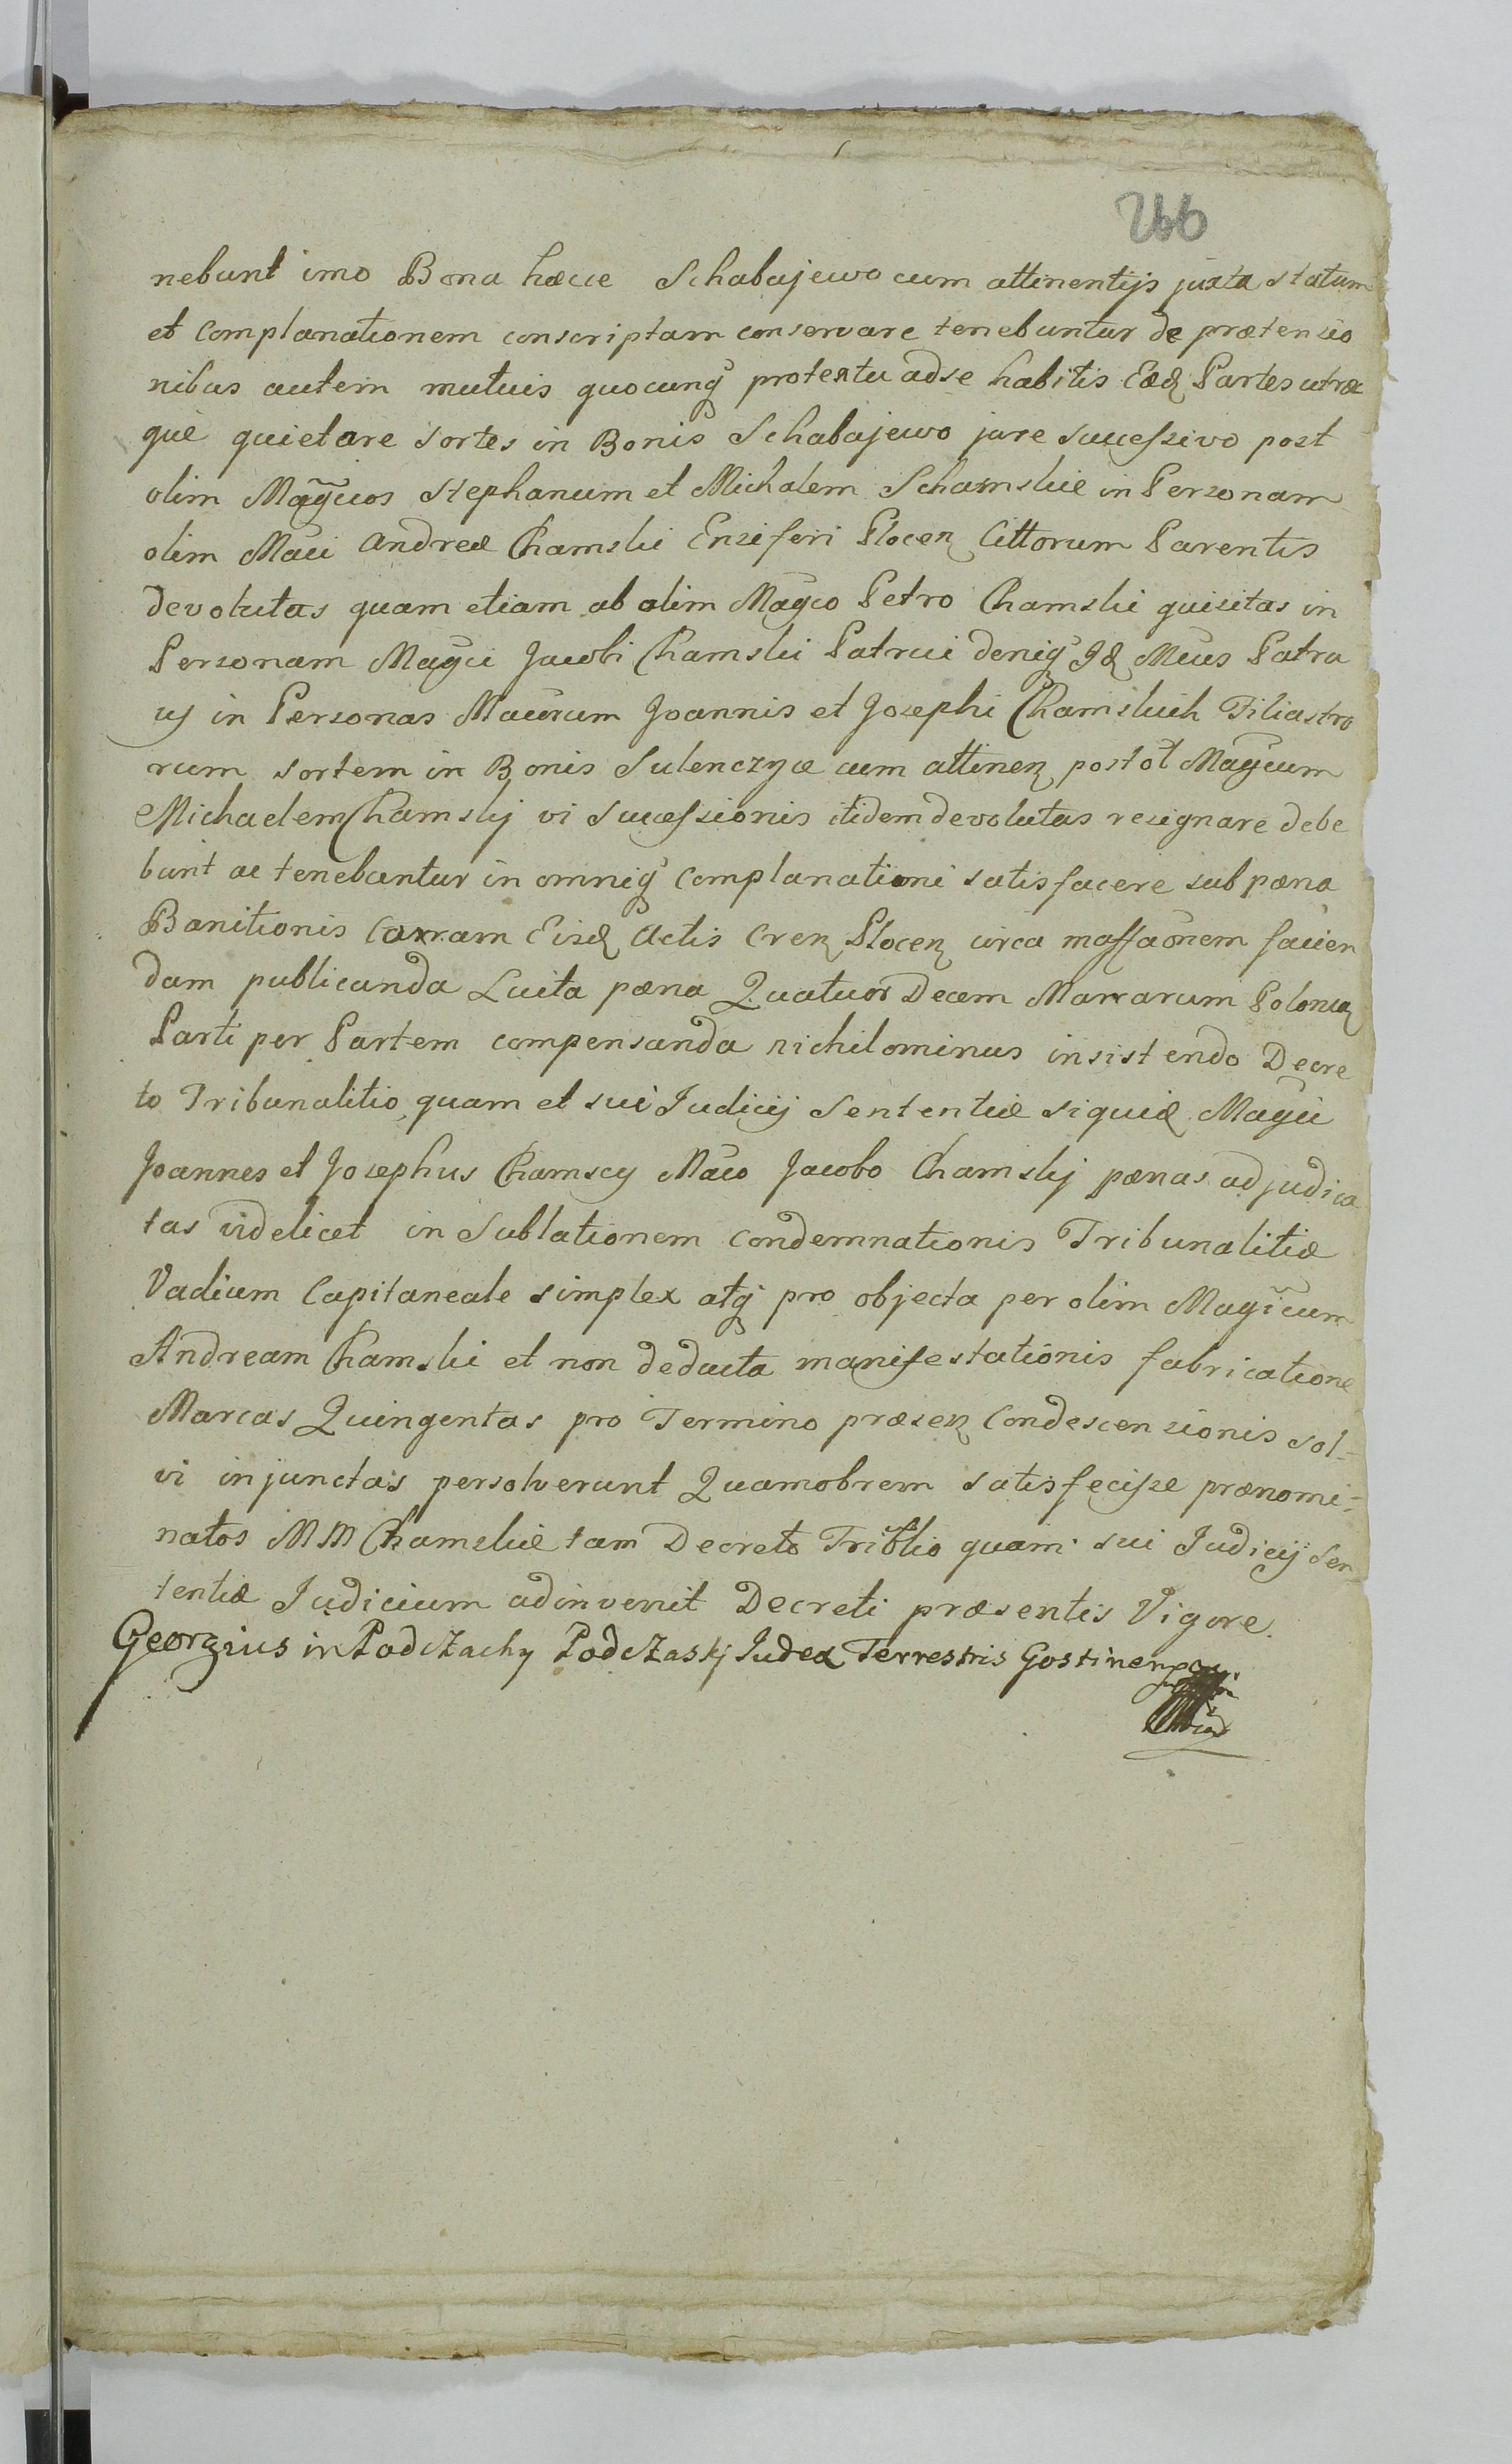 266
nebunt imo Bona hæcce Schabajewo cum attinentijs juxta statum
et complanationem conscriptam conservare tenebuntur de prætensio
nibus autem mutuis quocunq protextu ad se habitis Eæd Partes utræ
què quietare sortes in Bonis Schabajewo jure sucessivo post
olim Magcos Stephanum et Michalem Schamskie in Personam
olim Maci Andreæ Chamski Ensiferi Plocen Cittorum Parentis
devolutas quam etiam ab olim Magco Petro Chamski quisitas in
Personam Magci Jacobi Chamski Patrui deniq Id Mcus Patru
us in Personas Macorum Joannis et Josephi Chamskich Filiastro
rum sortem in Bonis Sulenczyce cum attinen post ol Magcum
Michaelem Chamskj vi Sucessionis itidem devolutas resignare debe
bunt ac tenebuntur in omniq complanationi satisfacere sub pæna
Banitionis Coram Eisd Actis Cren Plocen circa massaonem facien
dam publicanda Luita pæna Quatuor Decem Marcarum Polonica
Parti per Partem compensanda nichilominus insistendo Decre
to Tribunalitio quam et sui Judicij Sententiæ siquid Magci
Joannes et Josephus Chamscy Maco Jacobo Chamskj pænas adjudica
tas videlicet in Sublationem condemnationis Tribunalitiæ
Vadium Capitaneale simplex atq pro objecta per olim Magcum
Andream Chamski et non deducta manifestationis fabricatione
Marcas Quingentas pro Termino præsen Condescensionis sol=
vi injunctas persolverunt Quamobrem satisfecisse prænomi=
natos MM Chamskie tam Decreto Triblio quam sui Judicij Sen
tentiæ Judicium adinvenit Decreti præsentis Vigore.
Georgius in Podczachy Podczaskj Judex Terrestris Gostinen